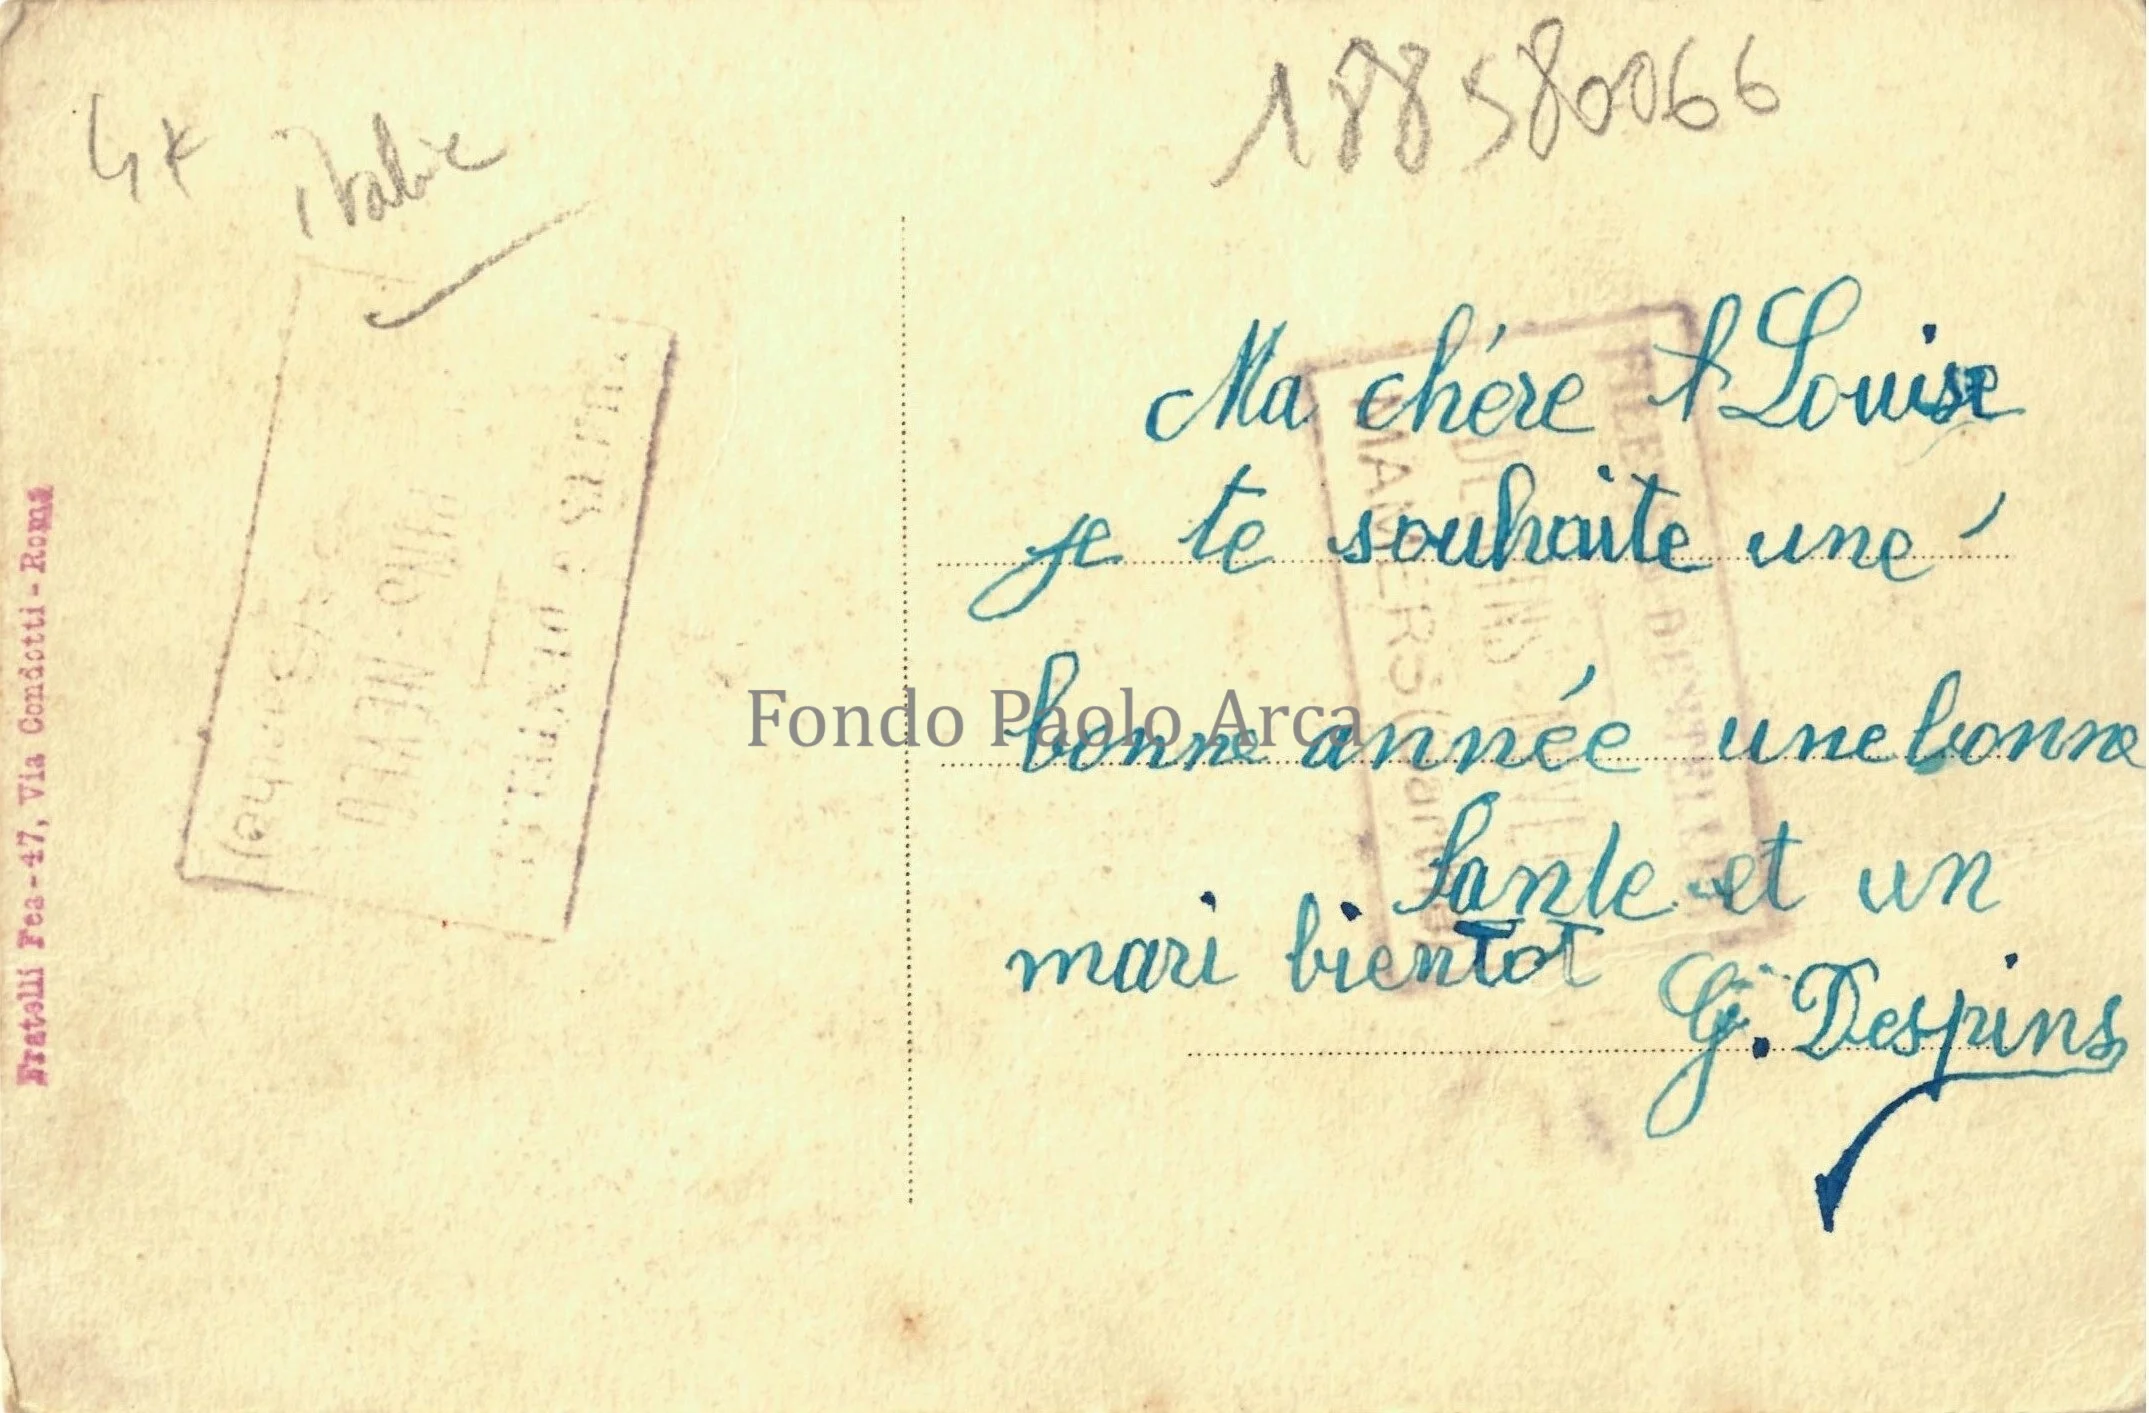 188580066
4x italie
Fratelli Fea - 47, Via Condotti - Roma
Ma chére t Louise
je te souhaite une
bonne année une bonne
Sante et un
mari bientot
G. Despins
MAMERS
Fondo Paolo Arca